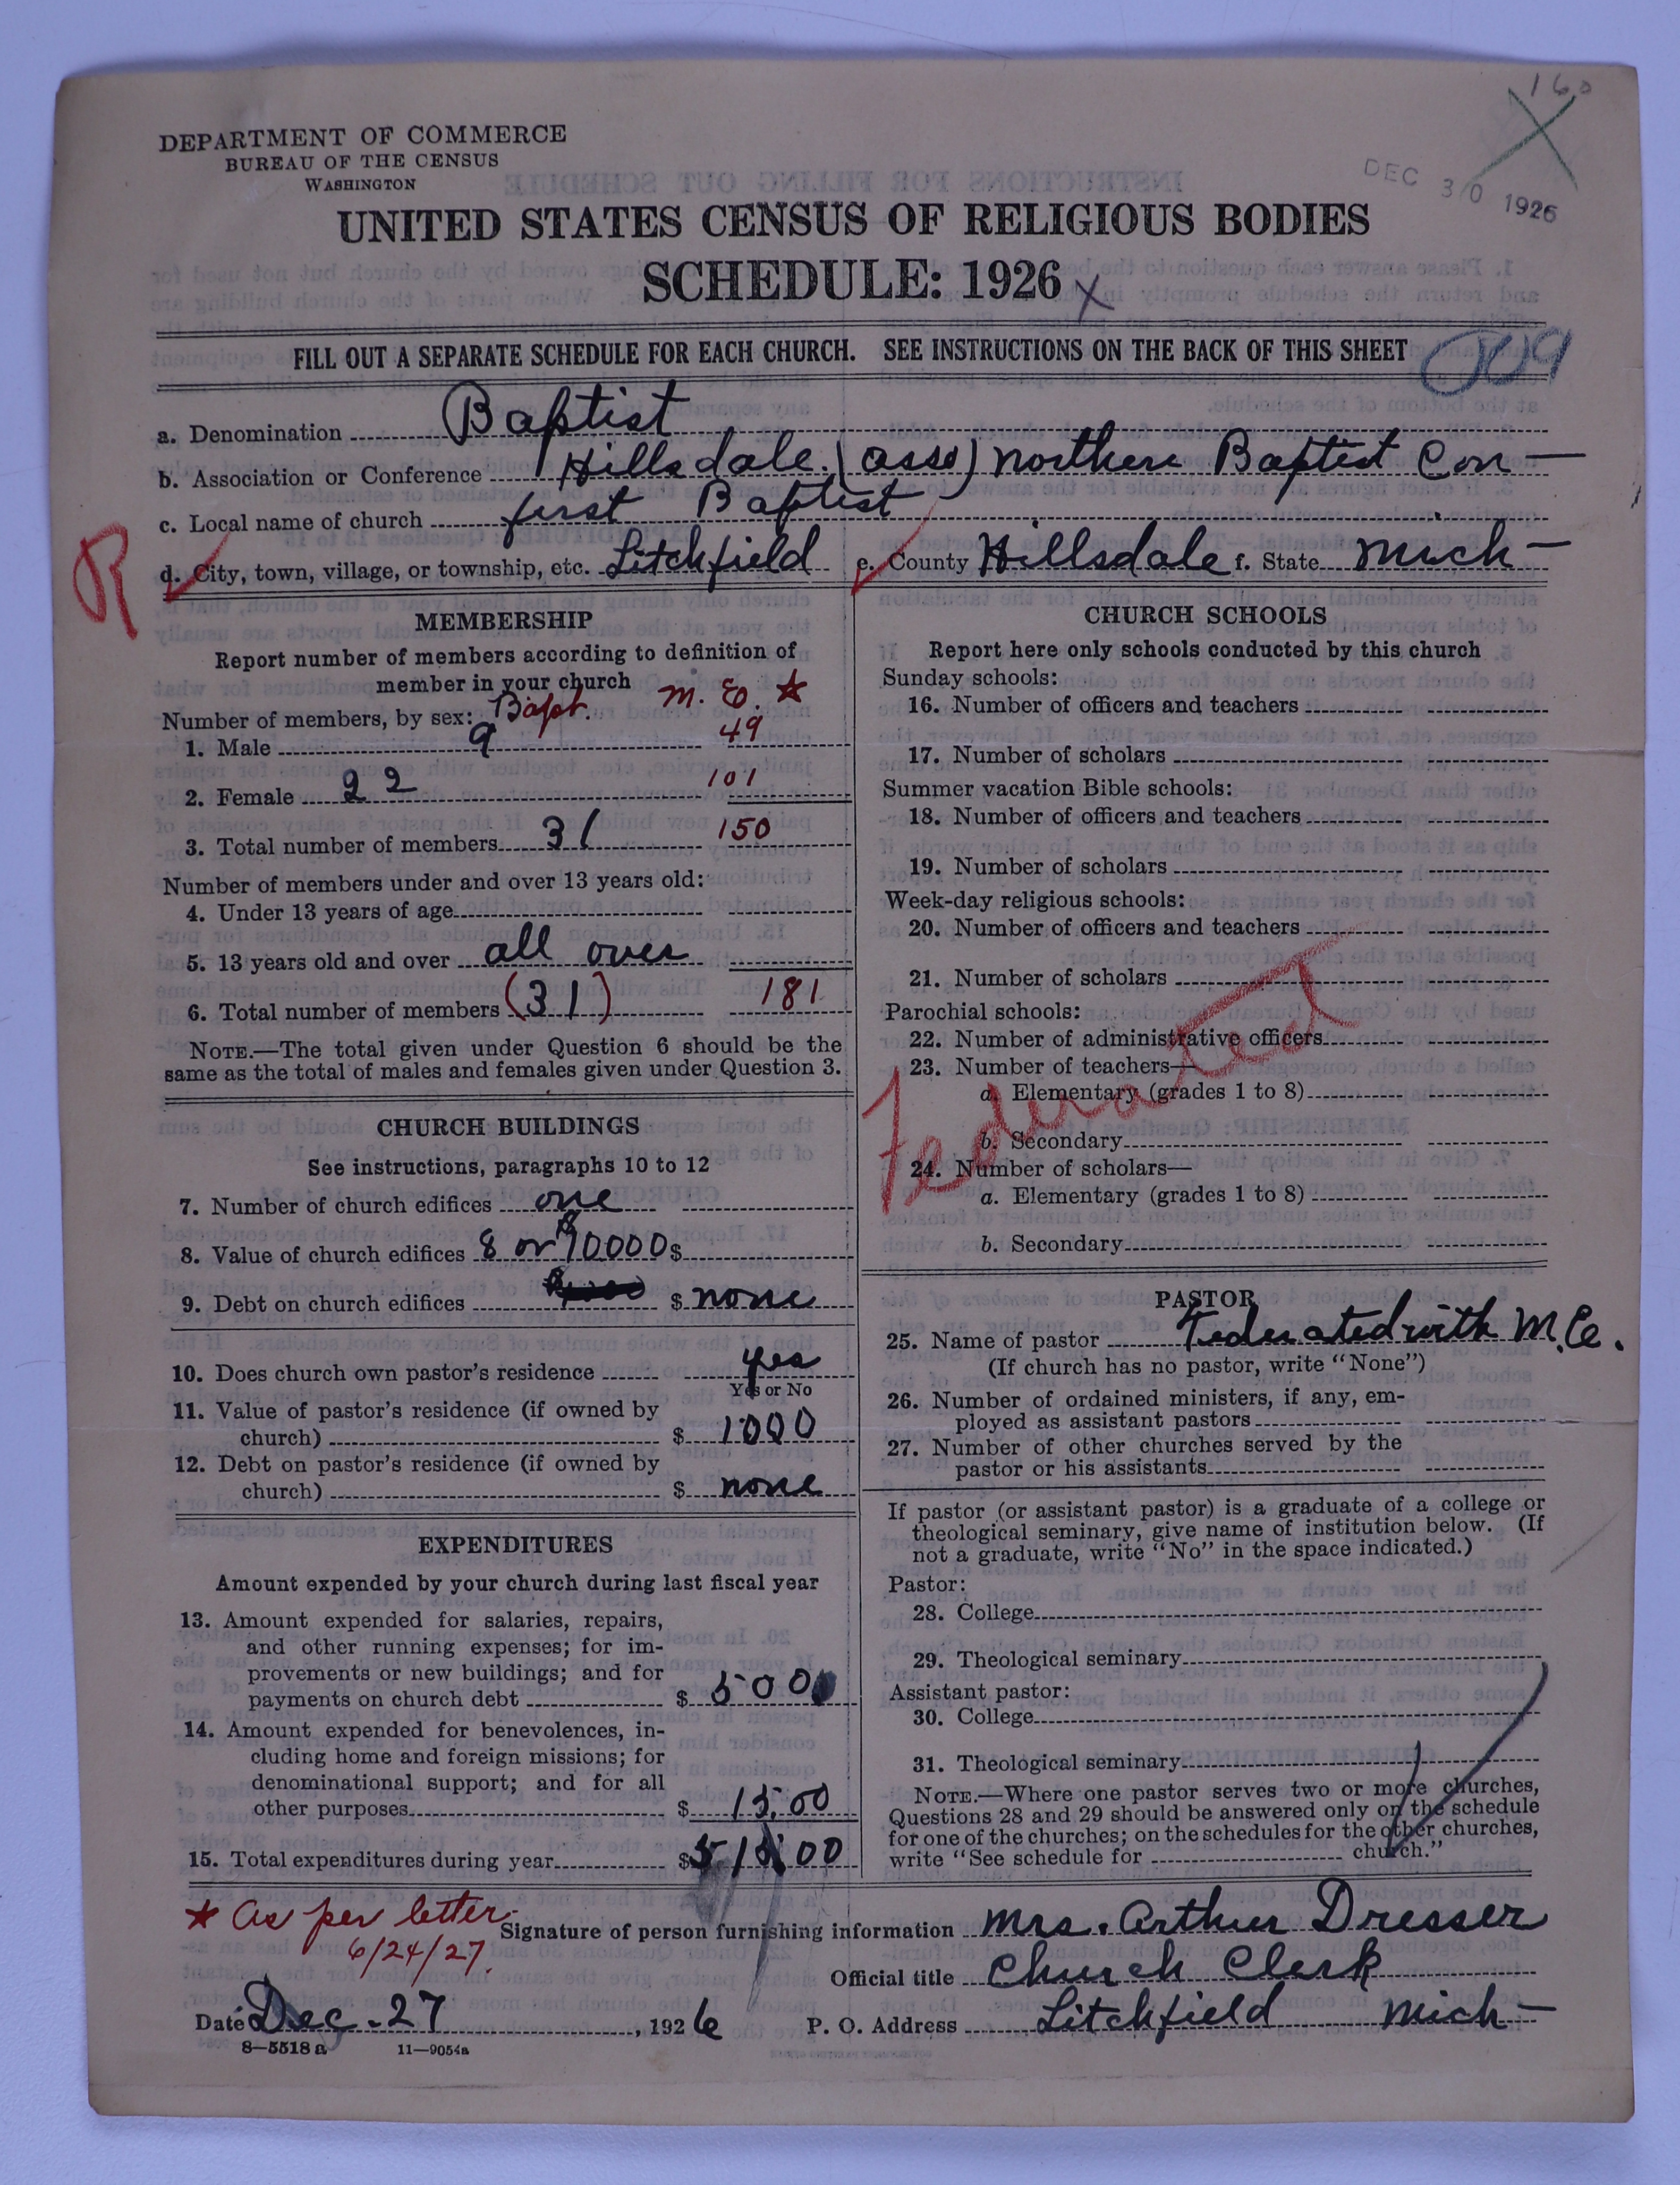 160
DEPARTMENT OF COMMERCE
BUREAU OF THE CENSUS
WASHINGTON
DEC 30 1926
UNITED STATES CENSUS OF RELIGIOUS BODIES
SCHEDULE: 1926 X
FILL OUT A SEPARATE SCHEDULE FOR EACH CHURCH. SEE INSTRUCTIONS ON THE BACK OF THIS SHEET
a. Denomination Baptist
b. Association or Conference Hillsdale (asso) Northern Baptist Con—
c. Local name of church first Baptist
R
d. City, town, village, or township, etc. Litchfield e. County Hillsdale f. State Mich—
MEMBERSHIP
Report number of members according to definition of
member in your church
Number of members, by sex: Bapt. M. E. ★
1. Male 9 49
2. Female 22 101
3. Total number of members 31 150
Number of members under and over 13 years old:
4. Under 13 years of age
5. 13 years old and over all over
6. Total number of members (31) 181
NOTE.—The total given under Question 6 should be the
same as the total of males and females given under Question 3.
CHURCH BUILDINGS
See instructions, paragraphs 10 to 12
7. Number of church edifices one
8. Value of church edifices 8 or $10000 $
9. Debt on church edifices $ none
10. Does church own pastor's residence yes
Yes or No
11. Value of pastor's residence (if owned by
church) $ 1000
12. Debt on pastor's residence (if owned by
church) $ none
EXPENDITURES
Amount expended by your church during last fiscal year
13. Amount expended for salaries, repairs,
and other running expenses; for im-
provements or new buildings; and for
payments on church debt $ 5000
14. Amount expended for benevolences, in-
cluding home and foreign missions; for
denominational support; and for all
other purposes $ 15.00
15. Total expenditures during year $ 515.00
CHURCH SCHOOLS
Report here only schools conducted by this church
Sunday schools:
16. Number of officers and teachers
17. Number of scholars
Summer vacation Bible schools:
18. Number of officers and teachers
19. Number of scholars
Week-day religious schools:
20. Number of officers and teachers
21. Number of scholars
Parochial schools:
22. Number of administrative officers
23. Number of teachers—
a. Elementary (grades 1 to 8)
b. Secondary
24. Number of scholars—
a. Elementary (grades 1 to 8)
b. Secondary
Federated
PASTOR
25. Name of pastor Federated with M.E.
(If church has no pastor, write "None")
26. Number of ordained ministers, if any, em-
ployed as assistant pastors
27. Number of other churches served by the
pastor or his assistants
If pastor (or assistant pastor) is a graduate of a college or
theological seminary, give name of institution below. (If
not a graduate, write "No" in the space indicated.)
Pastor:
28. College
29. Theological seminary
Assistant pastor:
30. College
31. Theological seminary
NOTE.—Where one pastor serves two or more churches,
Questions 28 and 29 should be answered only on the schedule
for one of the churches; on the schedules for the other churches,
write "See schedule for church."
★ As per letter
6/24/27.
Signature of person furnishing information Mrs. Arthur Dresser
Official title Church Clerk
Date Dec - 27, 1926 P. O. Address Litchfield Mich—
8—5518 a 11—9054a